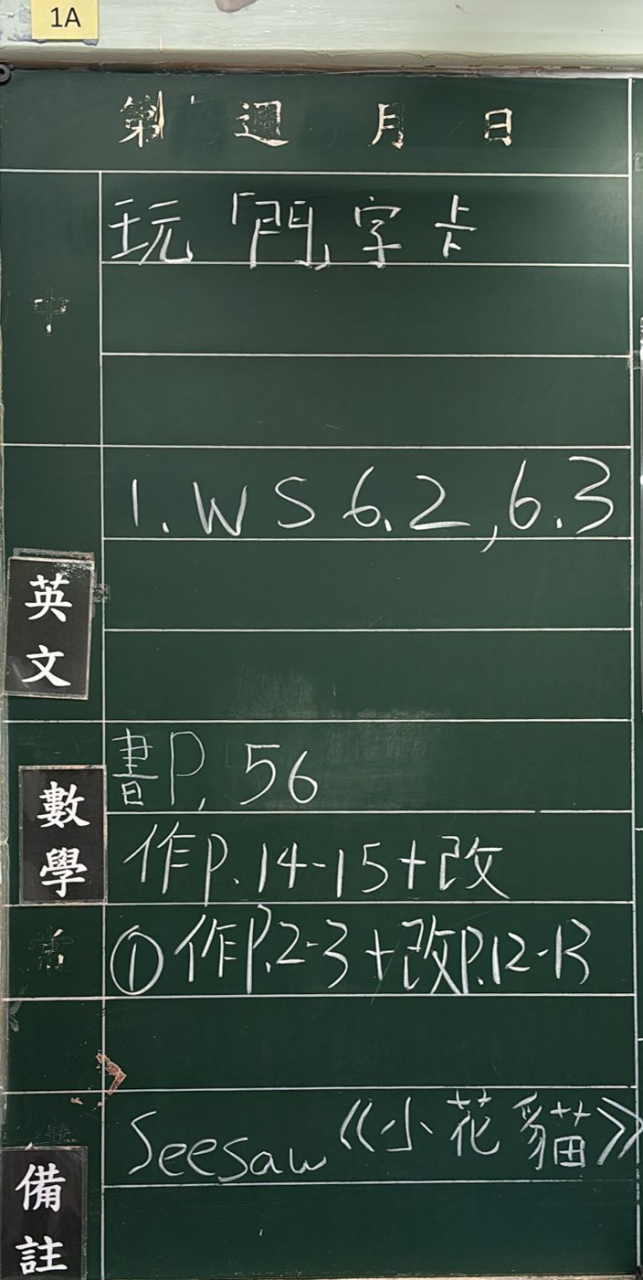 1A
第 週 月 日
中
玩「門」字卡
英文
1. WS 6.2, 6.3
數學
書P. 56
作P. 14-15+改
常
① 作P.2-3+改P.12-13
備註
Seesaw《小花貓》